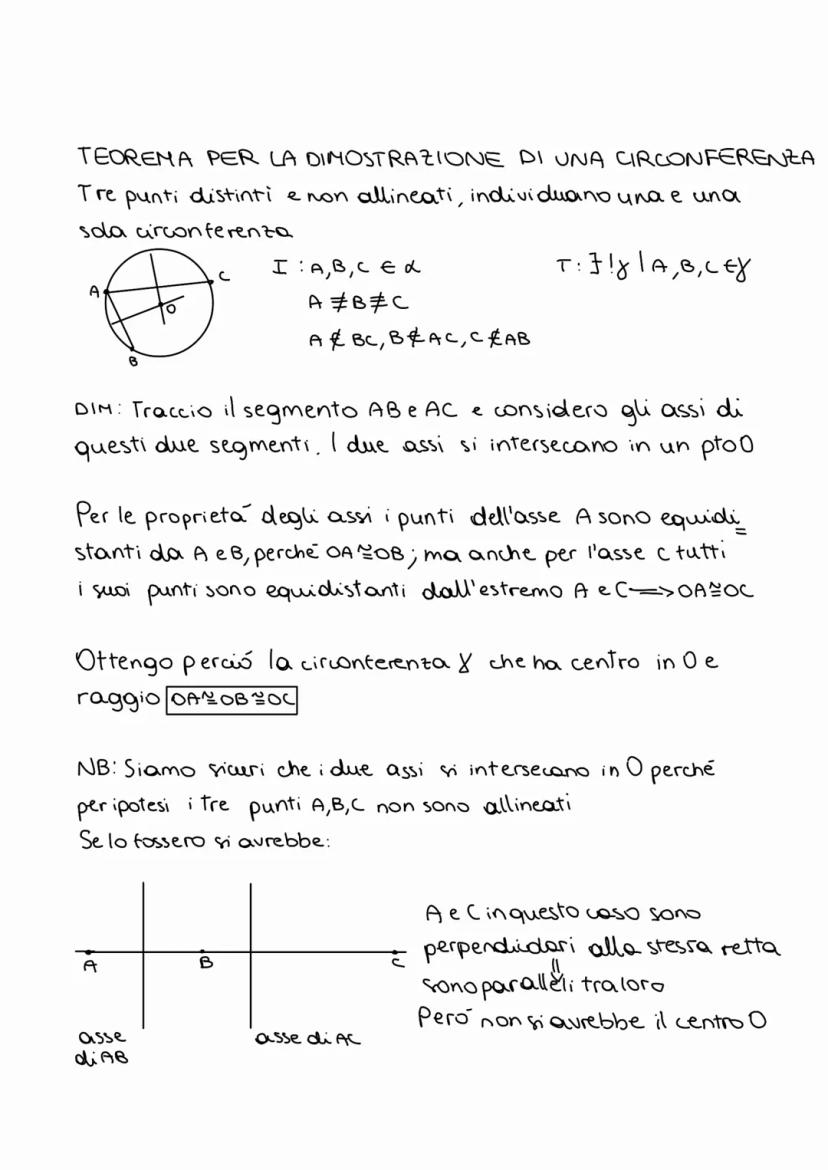 TEOREMA PER LA DIMOSTRAZIONE DI UNA CIRCONFERENZA
Tre punti distinti e non allineati, individuano una e una
sola circonferenza
A
C
O
B
I : A,B,C ∈ α
A ≢ B ≢ C
A ∉ BC, B ∉ AC, C ∉ AB
T: ∃!γ | A,B,C ∈ γ
DIM: Traccio il segmento AB e AC e considero gli assi di
questi due segmenti. I due assi si intersecano in un pto O
Per le proprietá degli assi i punti dell'asse A sono equidi=
stanti da A e B, perché OA≅OB; ma anche per l'asse c tutti
i suoi punti sono equidistanti dall'estremo A e C ⟹ OA≅OC
Ottengo perció la circonferenza γ che ha centro in O e
raggio OA≅OB≅OC
NB: Siamo sicuri che i due assi si intersecano in O perché
per ipotesi i tre punti A,B,C non sono allineati
Se lo fossero si avrebbe:
A
B
C
asse
di AB
asse di AC
A e C in questo caso sono
perpendicolari alla stessa retta
⇓
sono paralleli tra loro
Peró non si avrebbe il centro O